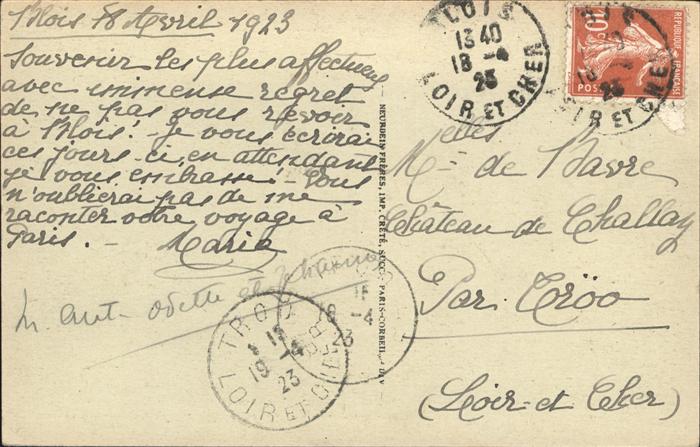 Blois 18 Avril 1923
Souvenir les plus affectueux
avec immense regret
de ne pas vous revoir
à Blois! - je vous écrirai
ces jours-ci, en attendant
je vous embrasse! - Vous
n'oublierai pas de me
raconter votre voyage à
Paris. - Maria
Odette et
BLOIS
13 40
18 -4
23
LOIR ET CHER
REPUBLIQUE FRANÇAISE
10c
POSTES
NEURDEIN FRÈRES, IMP. CRÉTÉ, SUCC. PARIS-CORBEIL
Melles de
Château de Challay
Par Tröo
(Loir-et Cher)
TROO
19 -4
23
LOIR ET CHER
19 -4
23